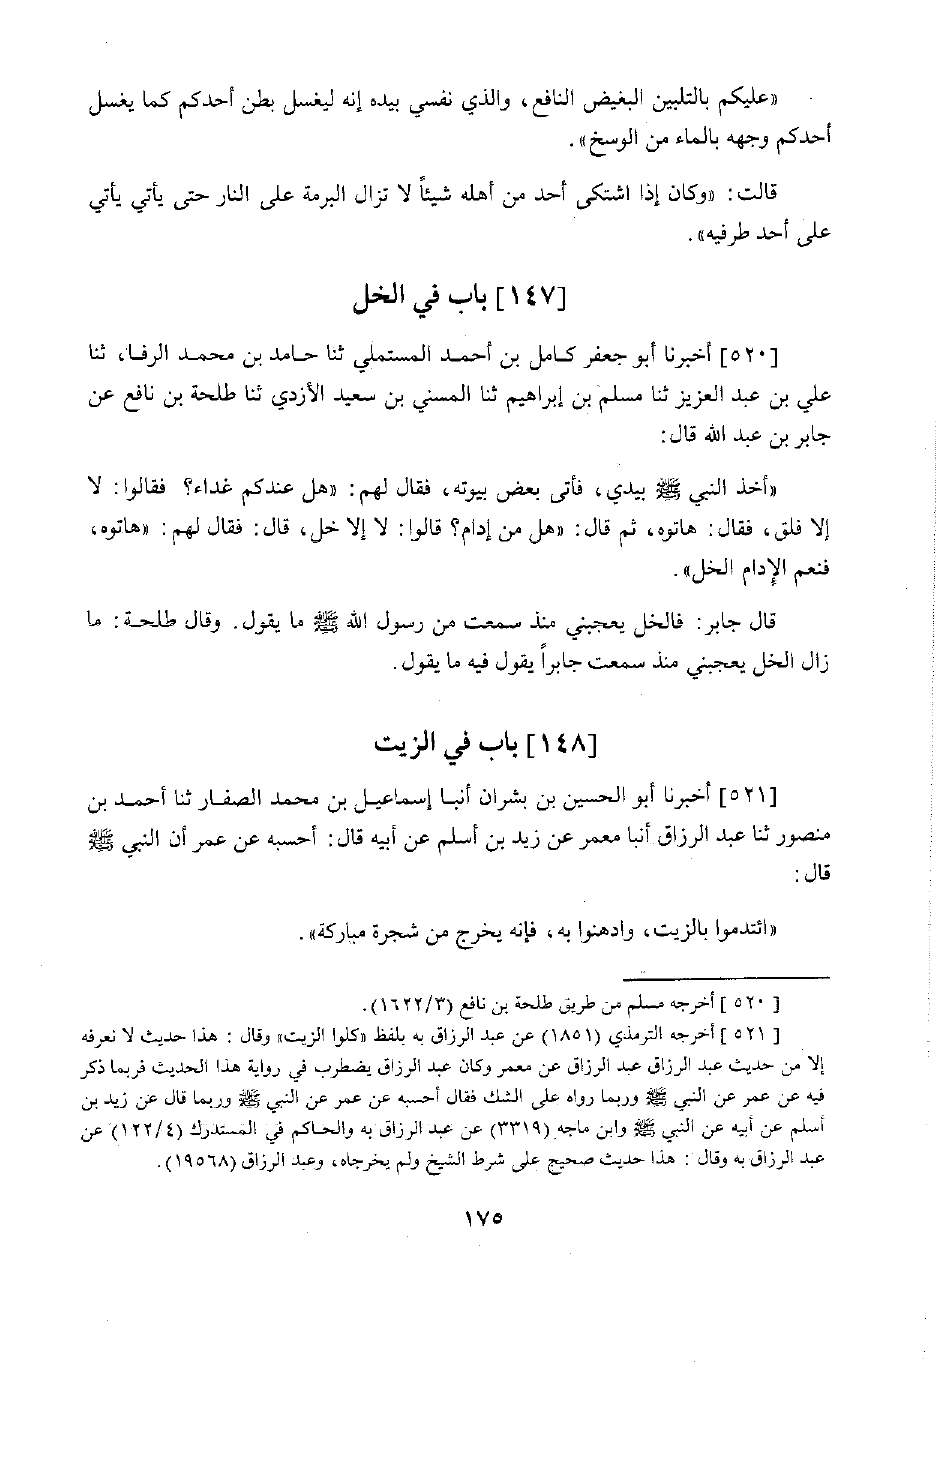 «عليكم بالتلبين البغيض النافع، والذي نفسي بيده إنه ليغسل بطن أحدكم كما يغسل
أحدكم وجهه بالماء من الوسخ».
قالت: «وكان إذا اشتكى أحد من أهله شيئاً لا تزال البرمة على النار حتى يأتي يأتي
على أحد طرفيه».
[١٤٧] باب في الخل
[٥٢٠] أخبرنا أبو جعفر كامل بن أحمد المستملي ثنا حامد بن محمد الرفاء، ثنا
علي بن عبد العزيز ثنا مسلم بن إبراهيم ثنا المسني بن سعيد الأزدي ثنا طلحة بن نافع عن
جابر بن عبد الله قال:
«أخذ النبي ﷺ بيدي، فأتى بعض بيوته، فقال لهم: «هل عندكم غداء؟ فقالوا: لا
إلا فلق، فقال: هاتوه، ثم قال: «هل من إدام؟ قالوا: لا إلا خل، قال: فقال لهم: «هاتوه،
فنعم الإدام الخل».
قال جابر: فالخل يعجبني منذ سمعت من رسول الله ﷺ ما يقول. وقال طلحة: ما
زال الخل يعجبني منذ سمعت جابراً يقول فيه ما يقول.
[١٤٨] باب في الزيت
[٥٢١] أخبرنا أبو الحسين بن بشران أنبا إسماعيل بن محمد الصفار ثنا أحمد بن
منصور ثنا عبد الرزاق أنبا معمر عن زيد بن أسلم عن أبيه قال: أحسبه عن عمر أن النبي ﷺ
قال:
«ائتدموا بالزيت، وادهنوا به، فإنه يخرج من شجرة مباركة».
[٥٢٠] أخرجه مسلم من طريق طلحة بن نافع (١٦٢٢/٣).
[٥٢١] أخرجه الترمذي (١٨٥١) عن عبد الرزاق به بلفظ «كلوا الزيت» وقال: هذا حديث لا نعرفه
إلا من حديث عبد الرزاق عبد الرزاق عن معمر وكان عبد الرزاق يضطرب في رواية هذا الحديث فربما ذكر
فيه عن عمر عن النبي ﷺ وربما رواه على الشك فقال أحسبه عن عمر عن النبي ﷺ وربما قال عن زيد بن
أسلم عن أبيه عن النبي ﷺ وابن ماجه (٣٣١٩) عن عبد الرزاق به والحاكم في المستدرك (١٢٢/٤) عن
عبد الرزاق به وقال: هذا حديث صحيح على شرط الشيخ ولم يخرجاه، وعبد الرزاق (١٩٥٦٨).
١٧٥